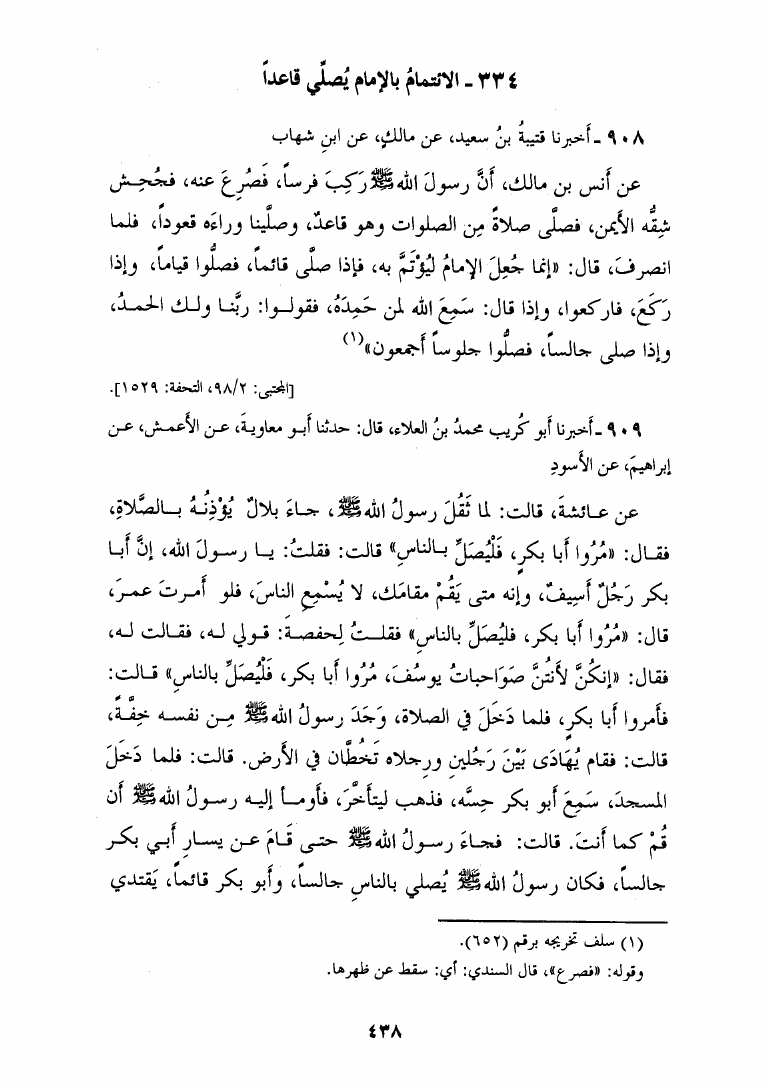 ٣٣٤ - الائتمامُ بالإمام يُصلِّي قاعداً
٩٠٨ - أخبرنا قتيبةُ بنُ سعيد، عن مالكٍ، عن ابنِ شهاب
عن أنس بن مالك، أنَّ رسولَ الله ﷺ رَكِبَ فرساً، فَصُرِعَ عنه، فجُحِـش
شِقُّه الأيمن، فصلَّى صلاةً مِن الصلوات وهو قاعدٌ، وصلَّينا وراءَه قعوداً، فلما
انصرفَ، قال: «إنما جُعِلَ الإمامُ لِيُؤْتَمَّ به، فإذا صلَّى قائماً، فصلُّوا قياماً، وإذا
رَكَعَ، فاركعوا، وإذا قال: سَمِعَ الله لمن حَمِدَهُ، فقولـوا: ربَّنـا ولـك الحمـدُ،
وإذا صلى جالساً، فصلُّوا جلوساً أجمعون»(١)
[المجتبى: ٩٨/٢، التحفة: ١٥٢٩].
٩٠٩ - أخبرنا أبو كُريب محمدُ بنُ العلاء، قال: حدثنا أبـو معاويـةَ، عـن الأعمـش، عـن
إبراهيمَ، عن الأسودِ
عن عـائشةَ، قالت: لما ثَقُلَ رسولُ الله ﷺ، جـاءَ بلالٌ يُؤْذِنُـهُ بـالصَّلاةِ،
فقـال: «مُرُوا أبا بكرٍ، فَلْيُصَلِّ بـالناسِ» قالت: فقلتُ: يـا رسـولَ الله، إنَّ أبـا
بكر رَجُلٌ أسِيفٌ، وإنه متى يَقُمْ مقامَك، لا يُسْمِعِ الناسَ، فلو أمـرتَ عمـرَ،
قال: «مُرُوا أبا بكر، فليُصَلِّ بالناسِ» فقلـتُ لِحفصـةَ: قـولي لـه، فقـالت لـه،
فقال: «إنكُنَّ لأنتُنَّ صَوَاحباتُ يوسُفَ، مُرُوا أبا بكر، فَلْيُصَلِّ بالناسِ» قـالت:
فأمروا أبا بكرٍ، فلما دَخَلَ في الصلاة، وَجَدَ رسولُ الله ﷺ مِـن نفسـه خِفَّـةً،
قالت: فقام يُهَادَى بَيْنَ رَجُلينِ ورِجلاه تَخُطَّان في الأرض. قالت: فلمـا دَخَلَ
المسجدَ، سَمِعَ أبو بكر حِسَّه، فذهب ليتأخَّرَ، فأومـأ إليـه رسـولُ الله ﷺ أن
قُمْ كما أنتَ. قالت: فجـاءَ رسـولُ الله ﷺ حتـى قَـامَ عـن يسـارِ أبـي بكـر
جالسـاً، فكان رسولُ الله ﷺ يُصلي بالناسِ جالساً، وأبو بكر قائمـاً، يَقتـدي
(١) سلف تخريجه برقم (٦٥٢).
وقوله: «فصرع»، قال السندي: أي: سقط عن ظهرها.
٤٣٨